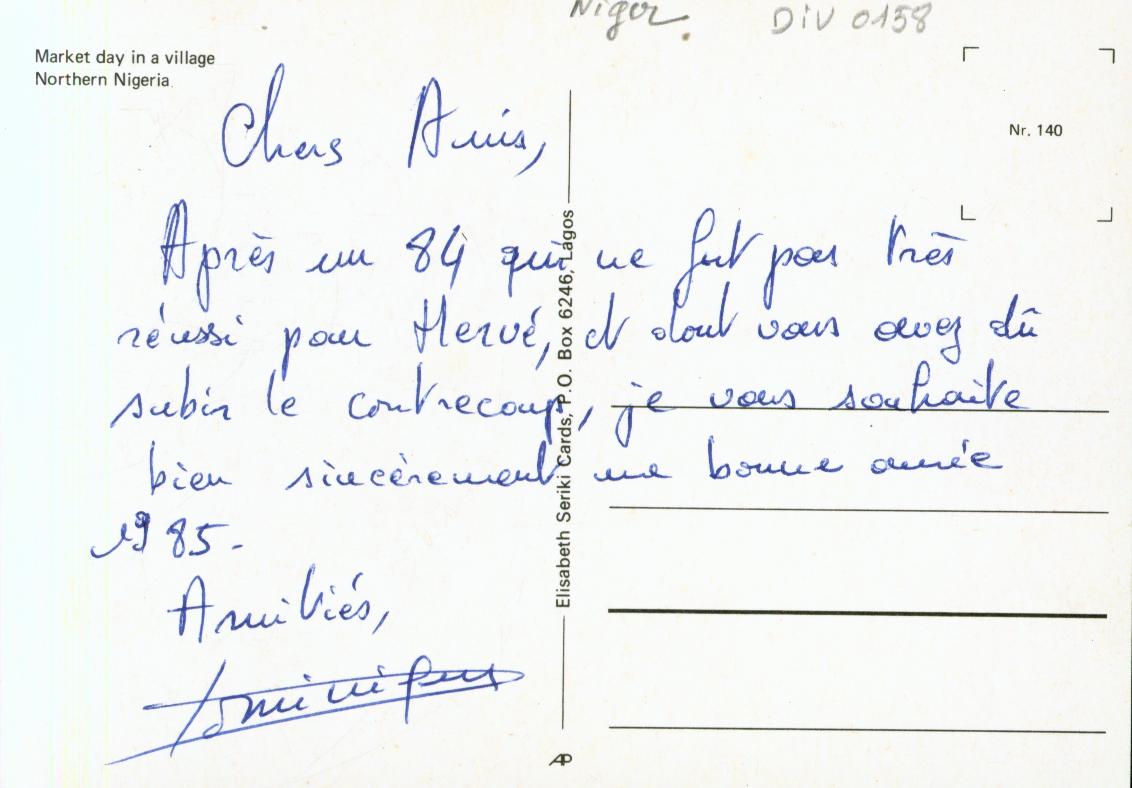 Niger DiV 0158
Market day in a village
Northern Nigeria
Nr. 140
Chers Amis,
Après un 84 qui ne fut pas très
réussi pour Hervé, et dont vous avez dû
subir le contrecoup, je vous souhaite
bien sincèrement une bonne année
1985.
Amitiés,
Dominique
Elisabeth Seriki Cards, P.O. Box 6246, Lagos